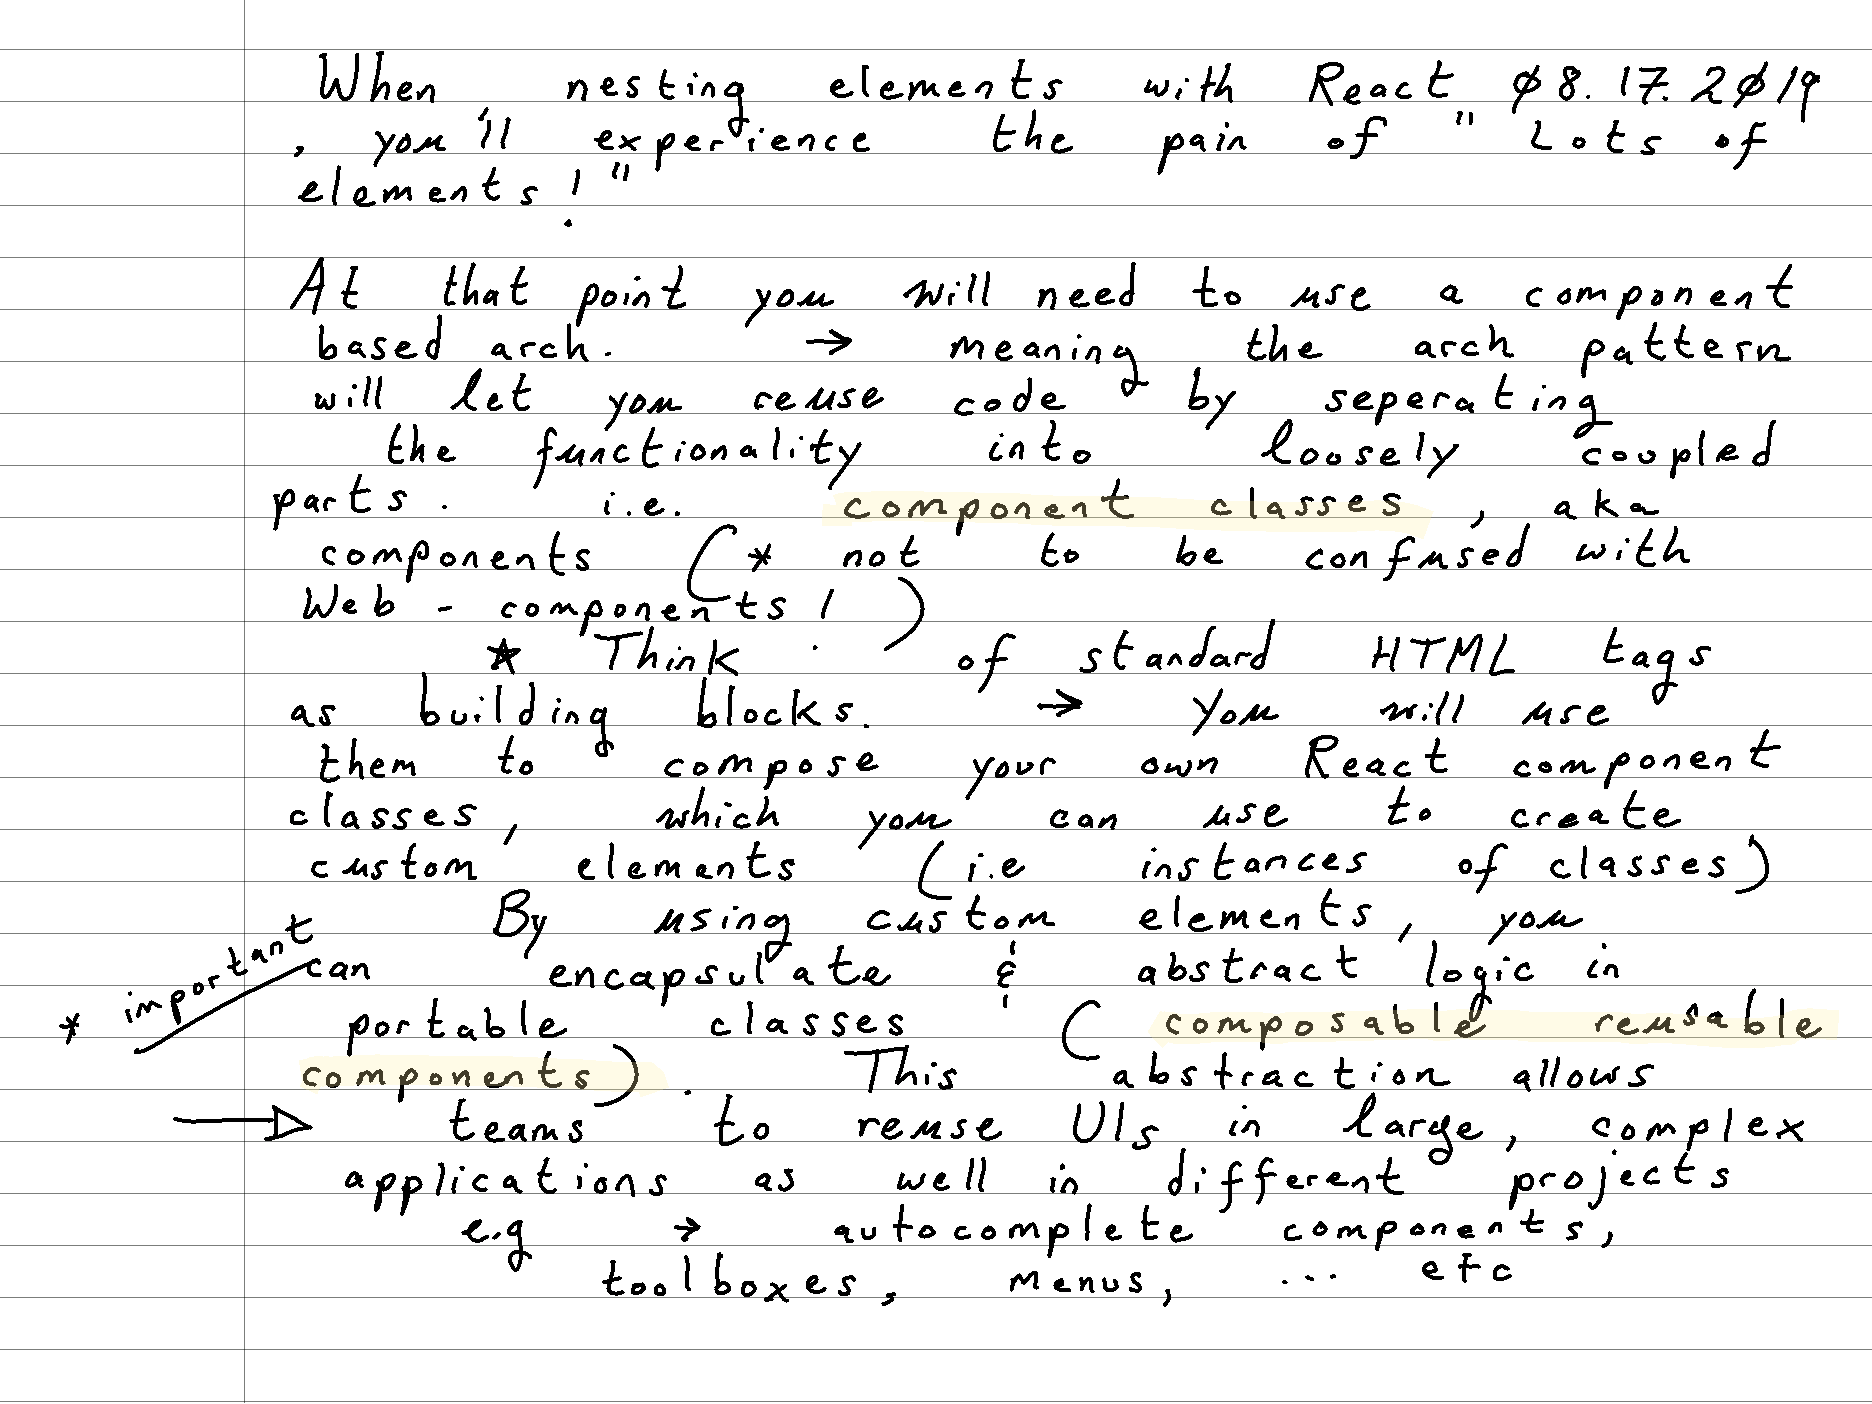 When nesting elements with React Ø8.17.2Ø19
, you'll experience the pain of "Lots of
elements!"
At that point you will need to use a component
based arch. → meaning the arch pattern
will let you reuse code by seperating
the functionality into loosely coupled
parts. i.e. component classes, aka
components (* not to be confused with
Web - components!)
★ Think of standard HTML tags
as building blocks. → You will use
them to compose your own React component
classes, which you can use to create
custom elements (i.e instances of classes)
By using custom elements, you
* important
can encapsulate & abstract logic in
portable classes (composable reusable
components). This abstraction allows
→ teams to reuse UIs in large, complex
applications as well in different projects
e.g → autocomplete components,
toolboxes, menus, ... etc